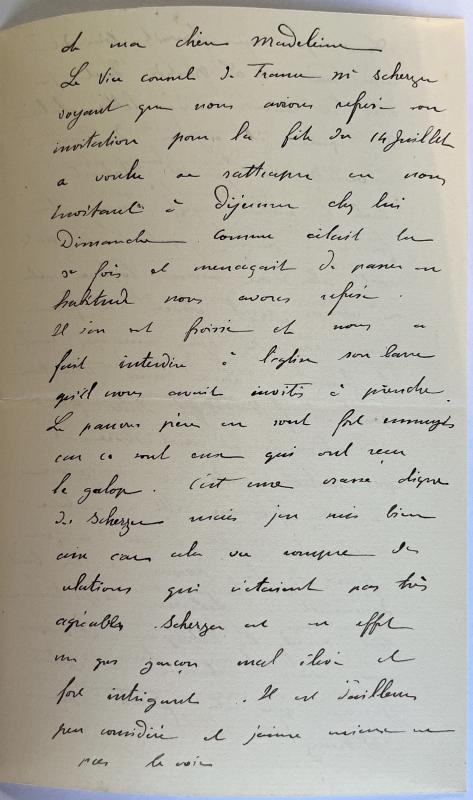 de ma chère Madeleine
Le Vice consul de France Mr Scherzer
voyant que nous avions refusé son
invitation pour la fête du 14 Juillet
a voulu se rattraper en nous
invitant à déjeuner chez lui
Dimanche comme c'était la
2e fois et menaçait de passer en
habitude nous avons refusé.
Il s'en est froissé et nous a
fait interdire à l'église son banc
qu'il nous avait invités à prendre.
Les pauvres pères en sont fort ennuyés
car ce sont eux qui ont reçu
le galop. C'est une crasse digne
de Scherzer mais j'en suis bien
aise car cela va rompre des
relations qui n'étaient pas très
agréables. Scherzer est en effet
un gros garçon mal élevé et
fort intrigant. Il est d'ailleurs
peu considéré et j'aime mieux ne
pas le voir